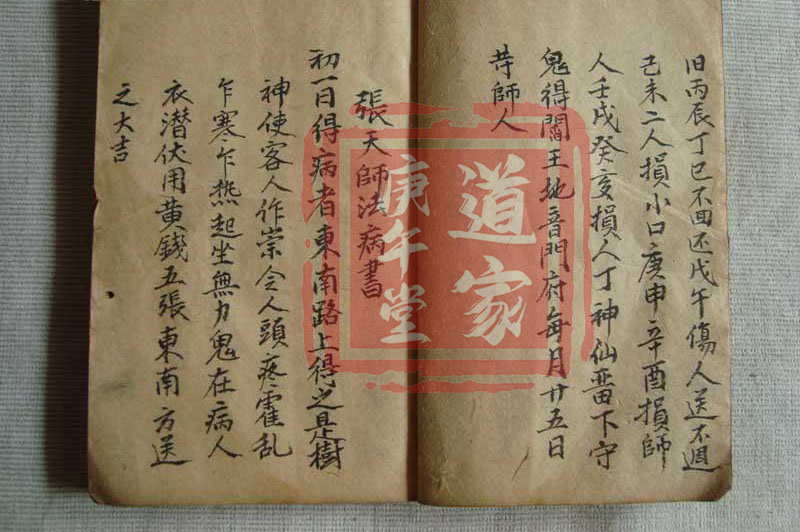 旧丙辰丁巳不回还戊午傷人送不週
己未二人損小口庚申辛酉損師
人壬戌癸亥損人丁神仙畨下守
鬼得閻王地音門府每月廿五日
芽師人
張天師法病書
初一日得病者東南路上得之是樹
神使客人作祟令人頭疼霍乱
乍寒乍热起坐無力鬼在病人
衣潜伏用黄錢五張東南方送
之大吉
道家
庚午堂